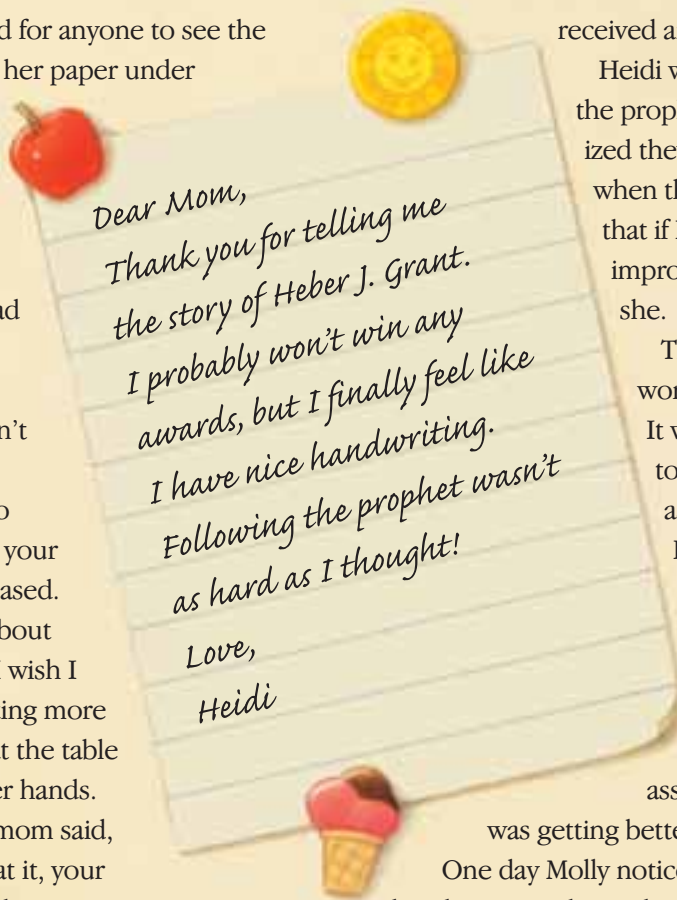 d for anyone to see the
her paper under
ad
n't
o
your
ased.
bout
I wish I
ing more
t the table
er hands.
mom said,
at it, your
Dear Mom,
Thank you for telling me
the story of Heber J. Grant.
I probably won't win any
awards, but I finally feel like
I have nice handwriting.
Following the prophet wasn't
as hard as I thought!
Love,
Heidi
received a
Heidi w
the prop
ized the
when th
that if
impro
she.
T
wor
It w
to
a
ass
was getting bette
One day Molly notic